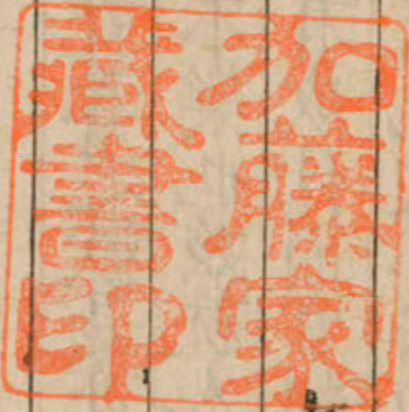 加藤家
藏書印